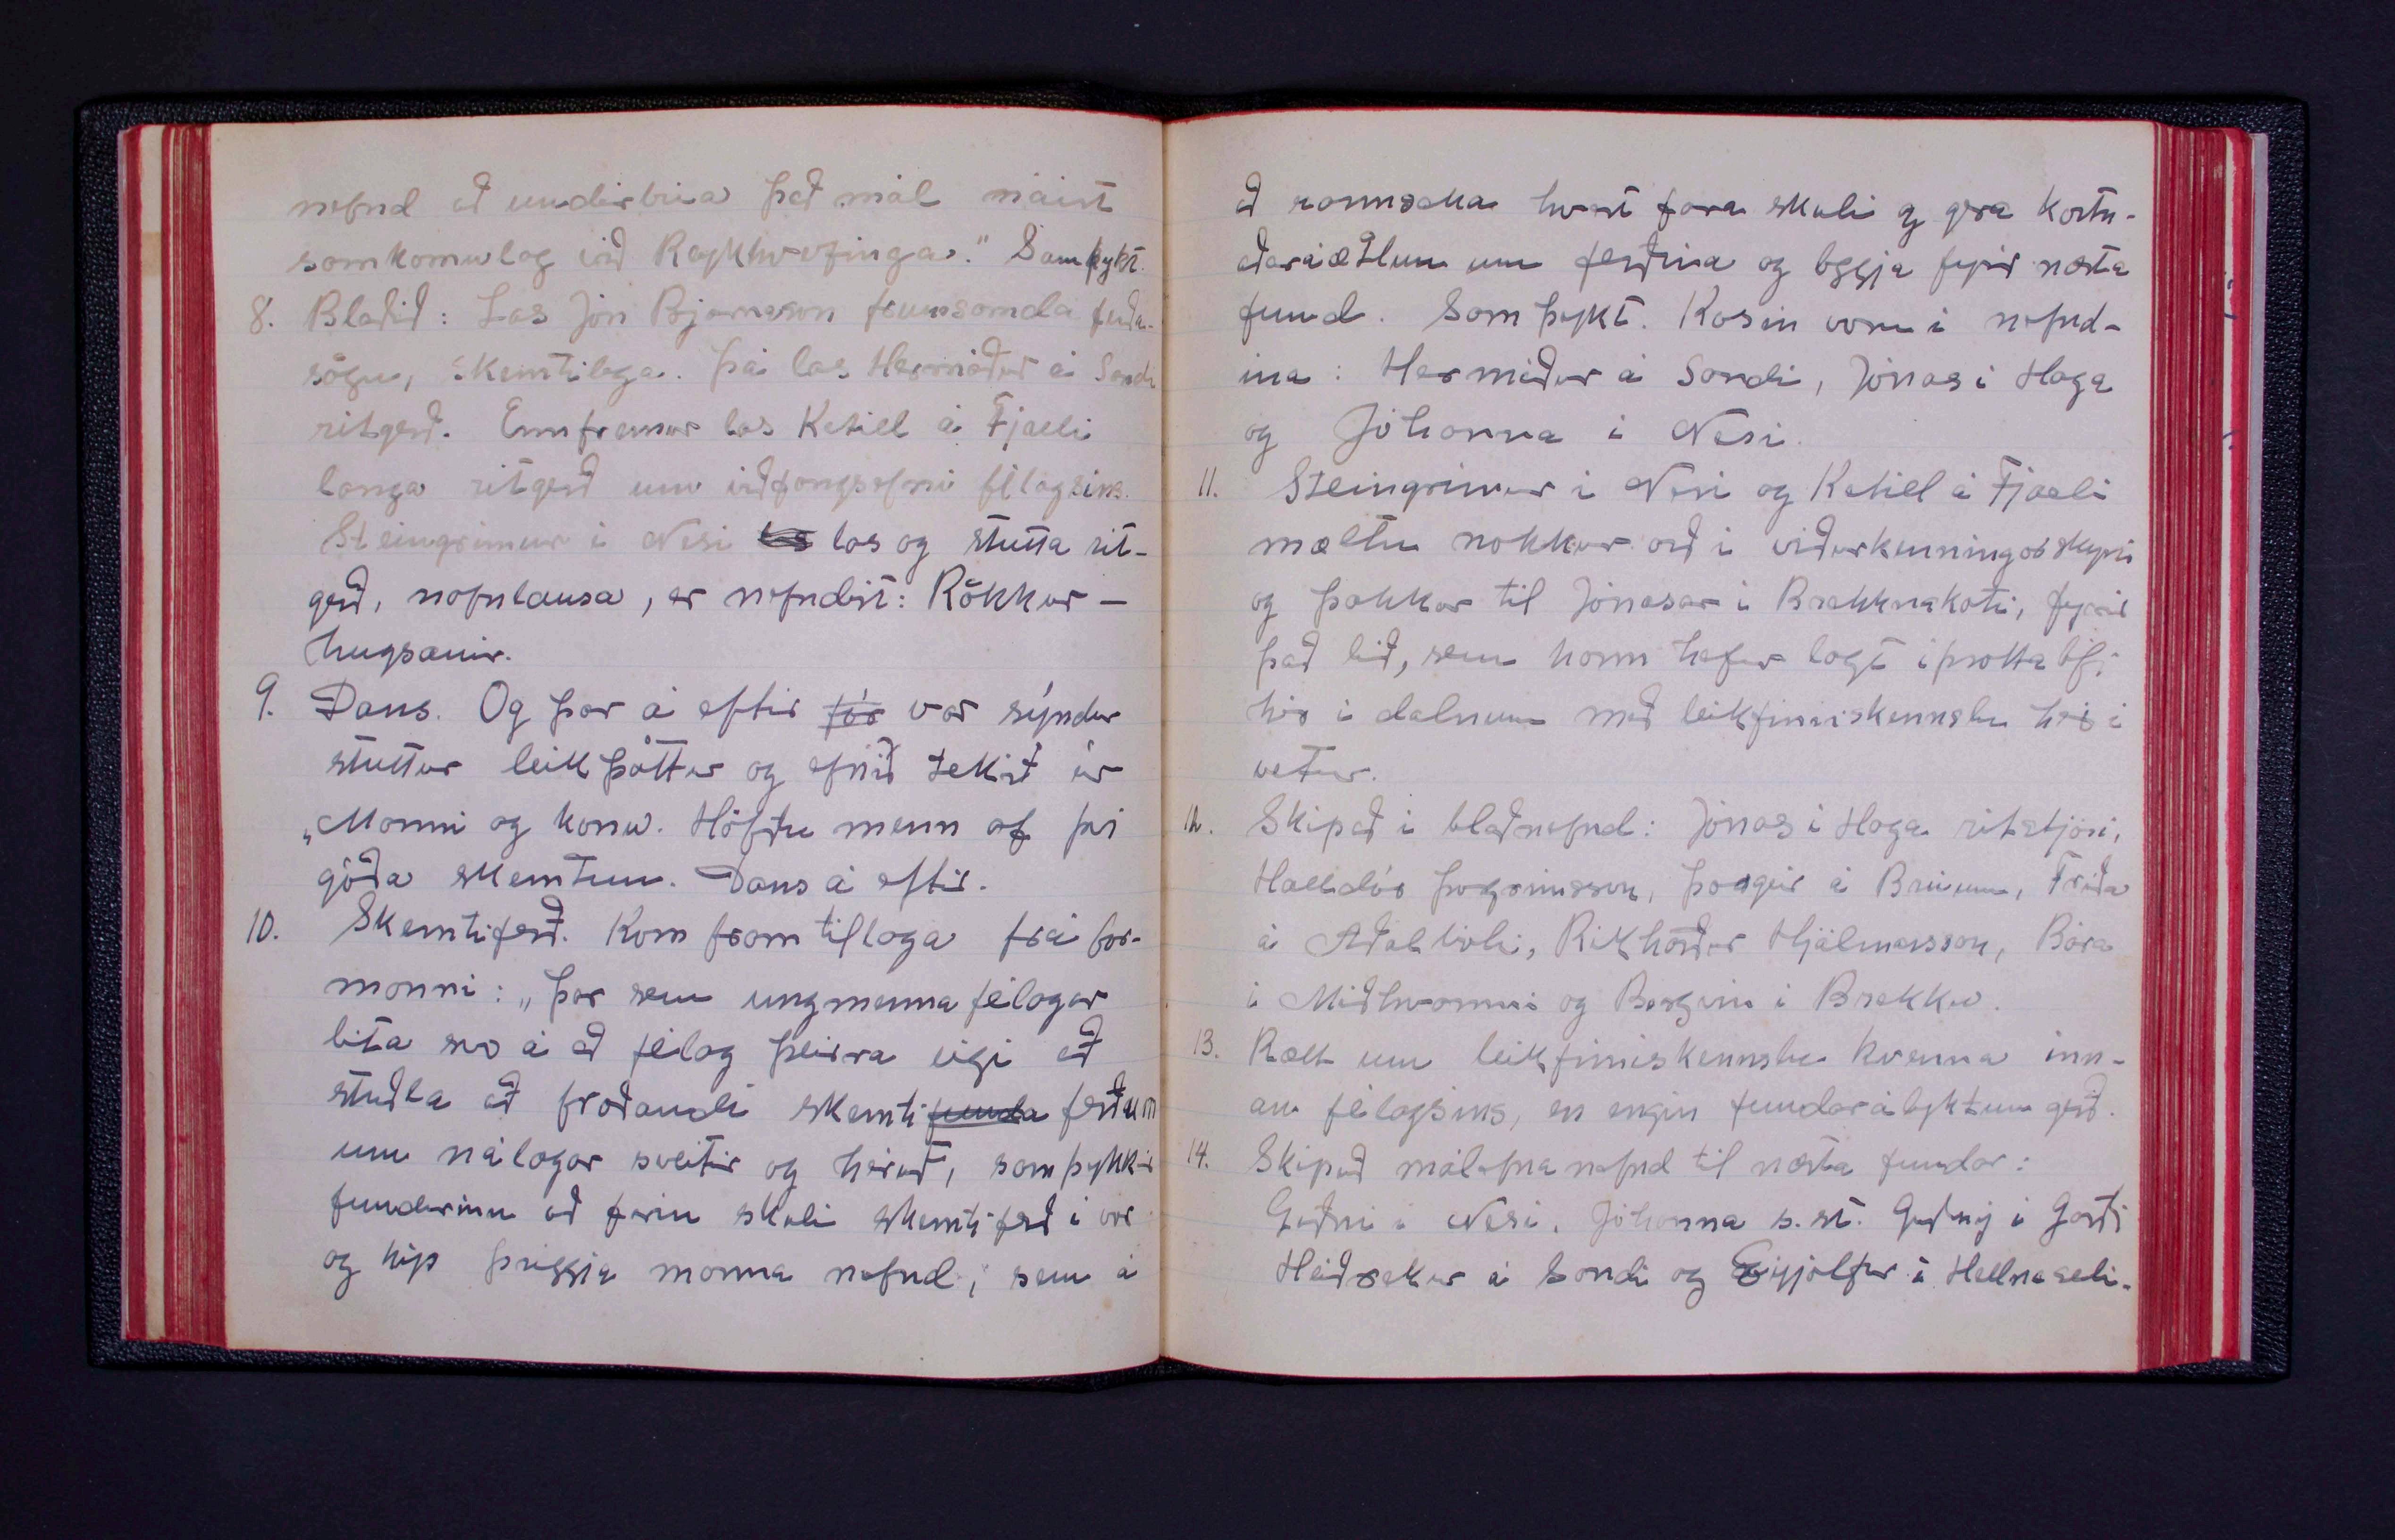 nefnd að undirbúa það mál náist
samkomulag við Reykhverfinga." Samþykt.
8. Blaðið: Las Jón Bjarnason frumsamda ferða-
sögu, skemtilega. Þá las Hermóður á Sandi
ritgerð. Ennfremur las Ketill á Fjalli
langa ritgerð um viðfangsefni félagsins.
Steingrímur í Nesi las og stutta rit-
gerð, nafnlausa, er nefndist: Rökkur-
hugsanir.
9. Dans. Og þar á eftir fór var sýndur
stuttur leikþáttur og efnið tekið úr
„Manni og konu. Höfðu menn af því
góða skemtun. Dans á eftir.
10. Skemtiferð. Kom fram tillaga frá for-
manni: „Þar sem ungmennafélagar
líta svo á að félag þeirra eigi að
stuðla að fræðandi skemtifunda ferðum
um nálægar sveitir og héruð, samþykkir
fundurinn að farin skuli skemtiferð í vor
og kýs þriggja manna nefnd, sem á
að rannsaka hvert fara skuli og gera kostn-
aðaráætlun um ferðina og leggja fyrir næsta
fund. Samþykt. Kosin voru í nefnd-
ina: Hermóður á Sandi, Jónas í Haga
og Jóhanna í Nesi.
11. Steingrímur í Nesi og Ketill á Fjalli
mæltu nokkur orð í viðurkenningarskyni
og þakkar til Jónasar í Brekknakoti, fyrir
það lið, sem hann hefur lagt íþróttalífi
hér í dalnum með leikfimiskennslu hér í
vetur.
12. Skipað í blaðnefnd: Jónas í Haga ritstjóri,
Halldór Þorgrímsson, Þorgeir á Brúum, Fríða
á Aðalbóli, Rikharður Hjálmarsson, Bára
í Miðhvammi og Bergvin í Brekku.
13. Rætt um leikfimiskennslu kvenna inn-
an félagsins, en engin fundarályktun gerð.
14. Skipað málefnanefnd til næsta fundar:
Guðni í Nesi, Jóhanna s.st. Guðný í Garði
Heiðrekur á Sandi og Eyjólfur í Hellnaseli.